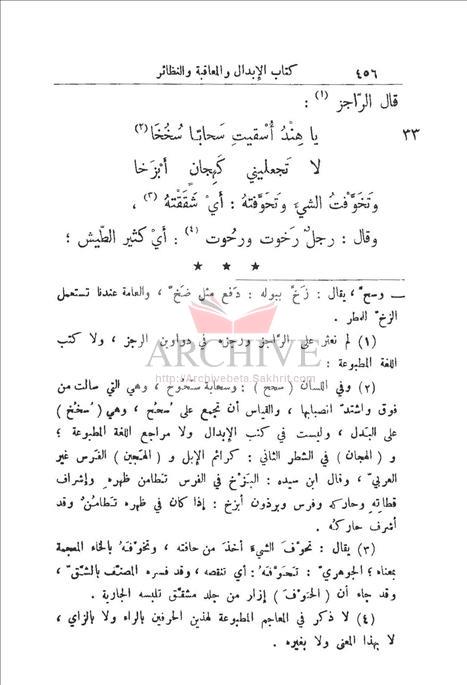 ٤٥٦ كتاب الإبدال والمعاقبة والنظائر
قال الرّاجز (١) :
٣٣ يا هِنْدُ أُسْقيتِ سَحابًا سُخُخَا (٢)
لا تَجعليني كَهِجانٍ أَبْزَخا
وتَخَوَّفْتُ الشيءَ وتَحَوَّفتهُ : أيْ شَقَقْتهُ (٣) ،
وقال : رجلٌ رَخوت ورحُوت (٤) : أيْ كثير الطّيش ؛
★ ★ ★
ــ وسحّ ، يقال : زَخّ ببوله : دَفع مثل ضَخّ ، والعامة عندنا تستعمل
الزخّ للمطر .
(١) لم نعثر على الرّاجز ورجزه في دواوين الرجز ، ولا كتب
اللغة المطبوعة :
ARCHIVE
http://Archivebeta.Sakhrit.com
(٢) وفي اللسان ( سحح ) : وسحابة سَحُوح ، وهي التي سالت من
فوق واشتدّ انصبابها ، والقياس أن تجمع على سُحُح ، وهي ( سُخُخ )
على البَدل ، وليست في كتب الإبدال ولا مراجع اللغة المطبوعة ؛
و ( الهجان ) في الشطر الثاني : كرائم الإبل و ( الهَجين ) الفَرس غير
العربيّ ، وقال ابن سيده : البَزَخ في الفرس تطامن ظهرهِ وإشراف
قطاتِه وحاركه وفرس وبرذون أبزخ : إذا كان في ظهره تَطامُنٌ وقد
أشرف حاركُه .
(٣) يقال : تحوَّف الشيءَ أخذَ من حافته ، وتخوَّفهُ بالخاء المعجمة
بمعناه ؛ الجوهريّ : تَحوَّفهُ : أي تنقصه ، وقد فسره المصنّف بالشّقّ ،
وقد جاء أن ( الحَوف ) إزار من جلد مشقّق تلبسه الجارية .
(٤) لا ذكر في المعاجم المطبوعة لهذين الحرفين بالراء ولا بالزاي ،
لا بهذا المعنى ولا بغيره .